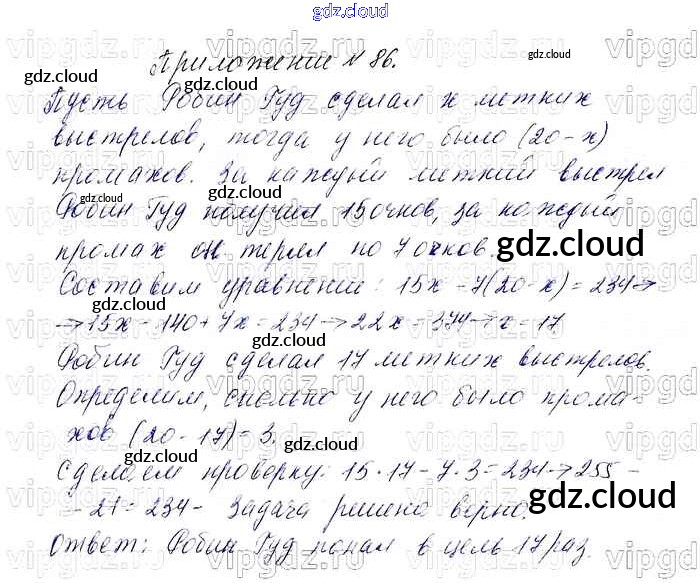 gdz.cloud
Приложение № 86.
Пусть Робин Гуд сделал x метких
выстрелов, тогда у него было (20-x)
промахов. За каждый меткий выстрел
Робин Гуд получил 15 очков, за каждый
промах он терял по 7 очков.
Составим уравнение: 15x - 7(20-x) = 234 →
→ 15x - 140 + 7x = 234 → 22x = 374 → x = 17
Робин Гуд сделал 17 метких выстрелов.
Определим, сколько у него было прома-
хов (20 - 17) = 3.
Сделаем проверку: 15·17 - 7·3 = 234 → 255 -
- 21 = 234 - Задача решена верно.
Ответ: Робин Гуд попал в цель 17 раз.
gdz.cloud
gdz.cloud
gdz.cloud
gdz.cloud
gdz.cloud
gdz.cloud
gdz.cloud
gdz.cloud
gdz.cloud